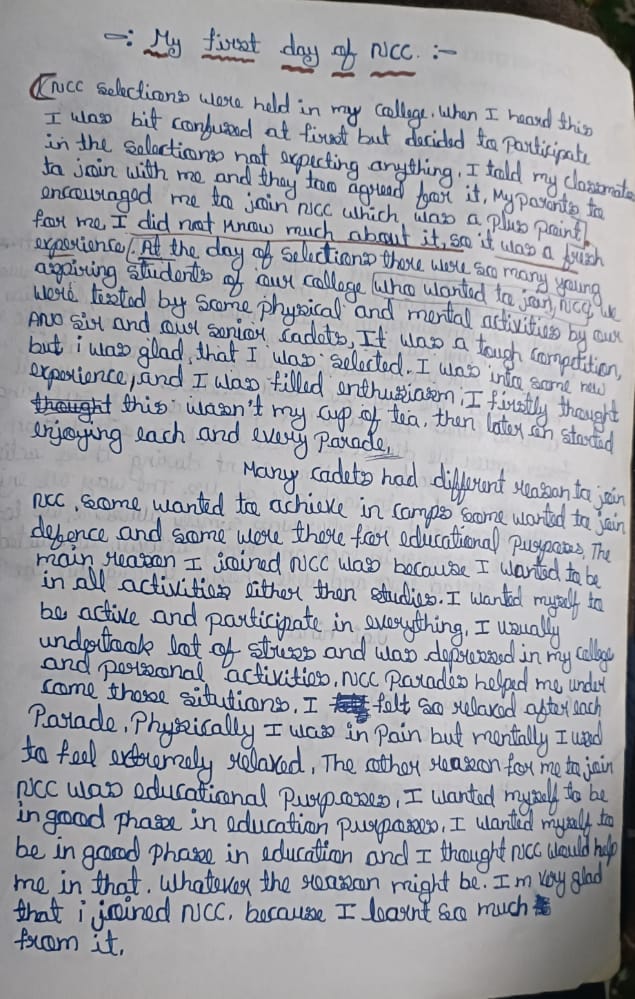 -: My first day of NCC. :-
NCC selections were held in my college. When I heard this
I was bit confused at first but decided to participate
in the selections not expecting anything, I told my classmate
to join with me and they too agreed for it, My parents to
encouraged me to join NCC which was a plus point
for me, I did not know much about it, so it was a fresh
experience. At the day of selections there were so many young
aspiring students of our college who wanted to join NCC we
were tested by some physical and mental activities by our
ANO sir and our senior cadets, It was a tough competition,
but i was glad, that I was selected. I was into some new
experience, and I was filled enthusiasm, I firstly thought
thought this wasn't my cup of tea, then later on started
enjoying each and every Parade.
Many cadets had different reason to join
NCC, some wanted to achieve in camps some wanted to join
defence and some were there for educational purposes, The
main reason I joined NCC was because I wanted to be
in all activities either then studies. I wanted myself to
be active and participate in everything, I usually
undertook lot of stress and was depressed in my college
and personal activities, NCC Parades helped me under
come those situtions. I felt so relaxed after each
Parade, Physically I was in Pain but mentally I used
to feel extremely relaxed, The other reason for me to join
NCC was educational Purposes, I wanted myself to be
in good phase in education purposes, I wanted myself to
be in good Phase in education and I thought NCC would help
me in that. Whatever the reason might be. I'm very glad
that i joined NCC, because I learnt so much
from it.